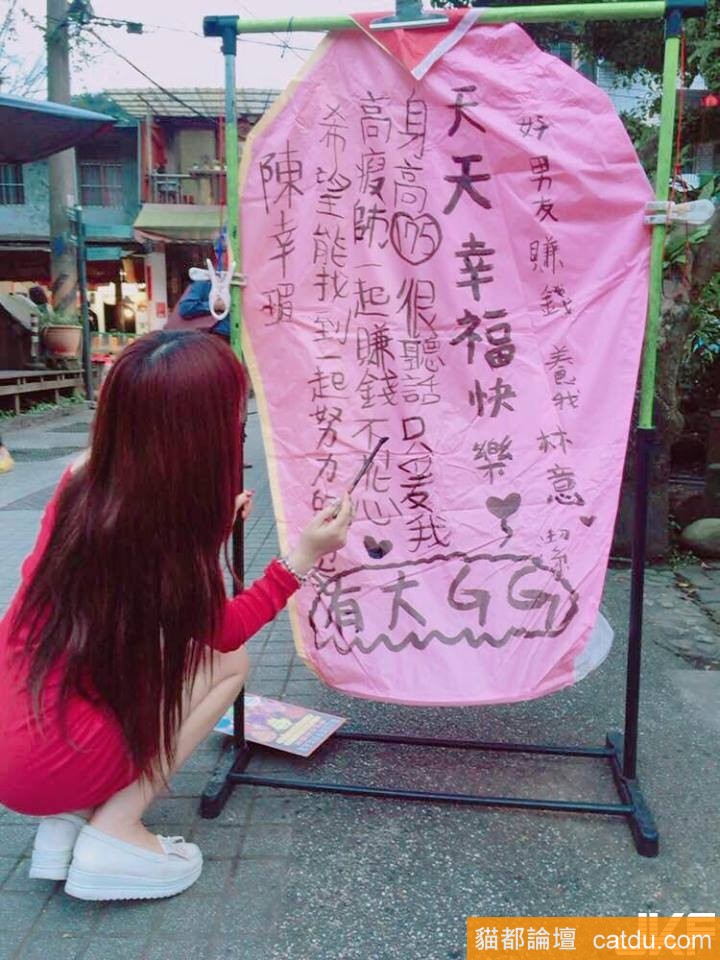 好男友賺錢養我 林意
天天幸福快樂
身高175很聽話只愛我
高瘦帥一起賺錢不花心
希望能找到一起努力的
陳幸瑕
有大GG
JKF
貓都論壇 catdu.com